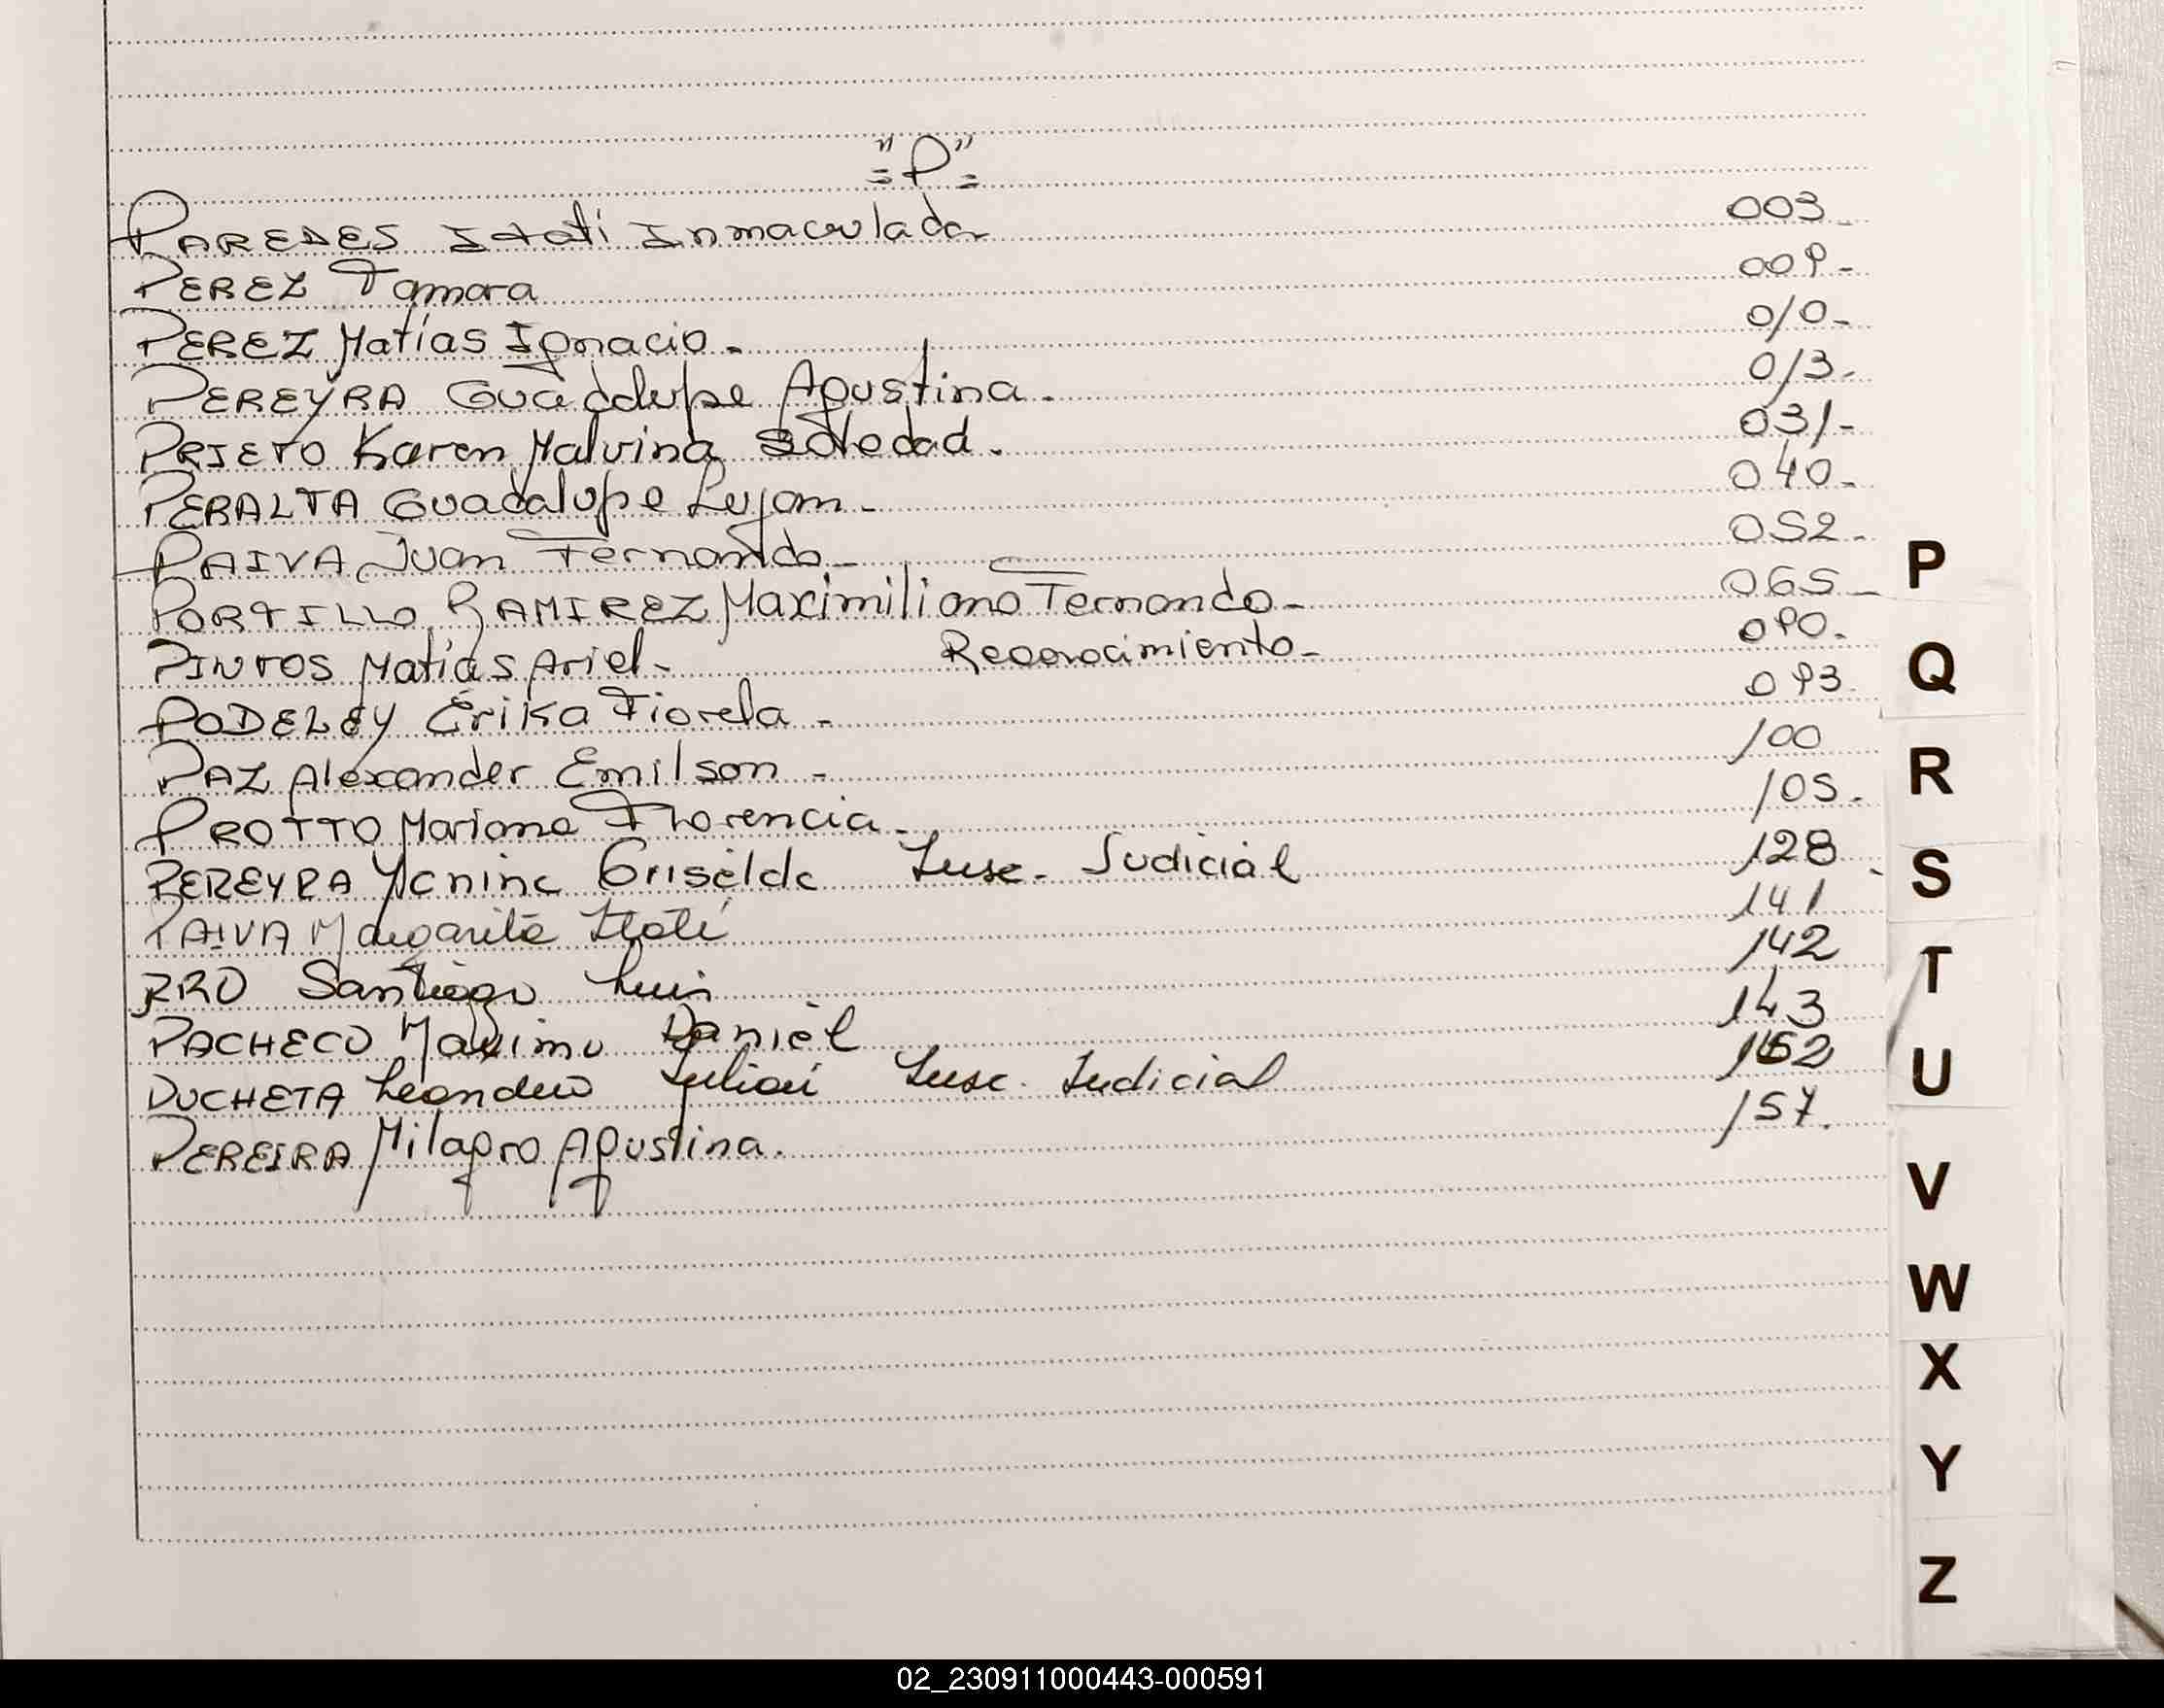 "P"
PAREDES Itati Inmaculada 003-
PEREZ Tamara 009-
PEREZ Matías Ignacio- 010-
PEREYRA Guadalupe Agustina. 013-
PRIETO Karen Malvina Soledad. 031-
PERALTA Guadalupe Lujan- 040-
PAIVA Juan Fernando- 052-
PORTILLO RAMIREZ Maximiliano Fernando- 065-
PINTOS Matías Ariel- Reconocimiento- 090.
PODELEY Érika Fiorela- 093.
PAZ Alexander Emilson- 100
PROTTO Mariana Florencia. 105.
PEREYRA Yanina Griselda Insc. Judicial 128
PAIVA Margarita Itatí 141
Santiago Luis 142
PACHECO Maximo Daniel 143
Leandro Julian Insc. Judicial 152
PEREIRA Milagro Agustina. 157.
P
Q
R
S
T
U
V
W
X
Y
Z
02_230911000443-000591